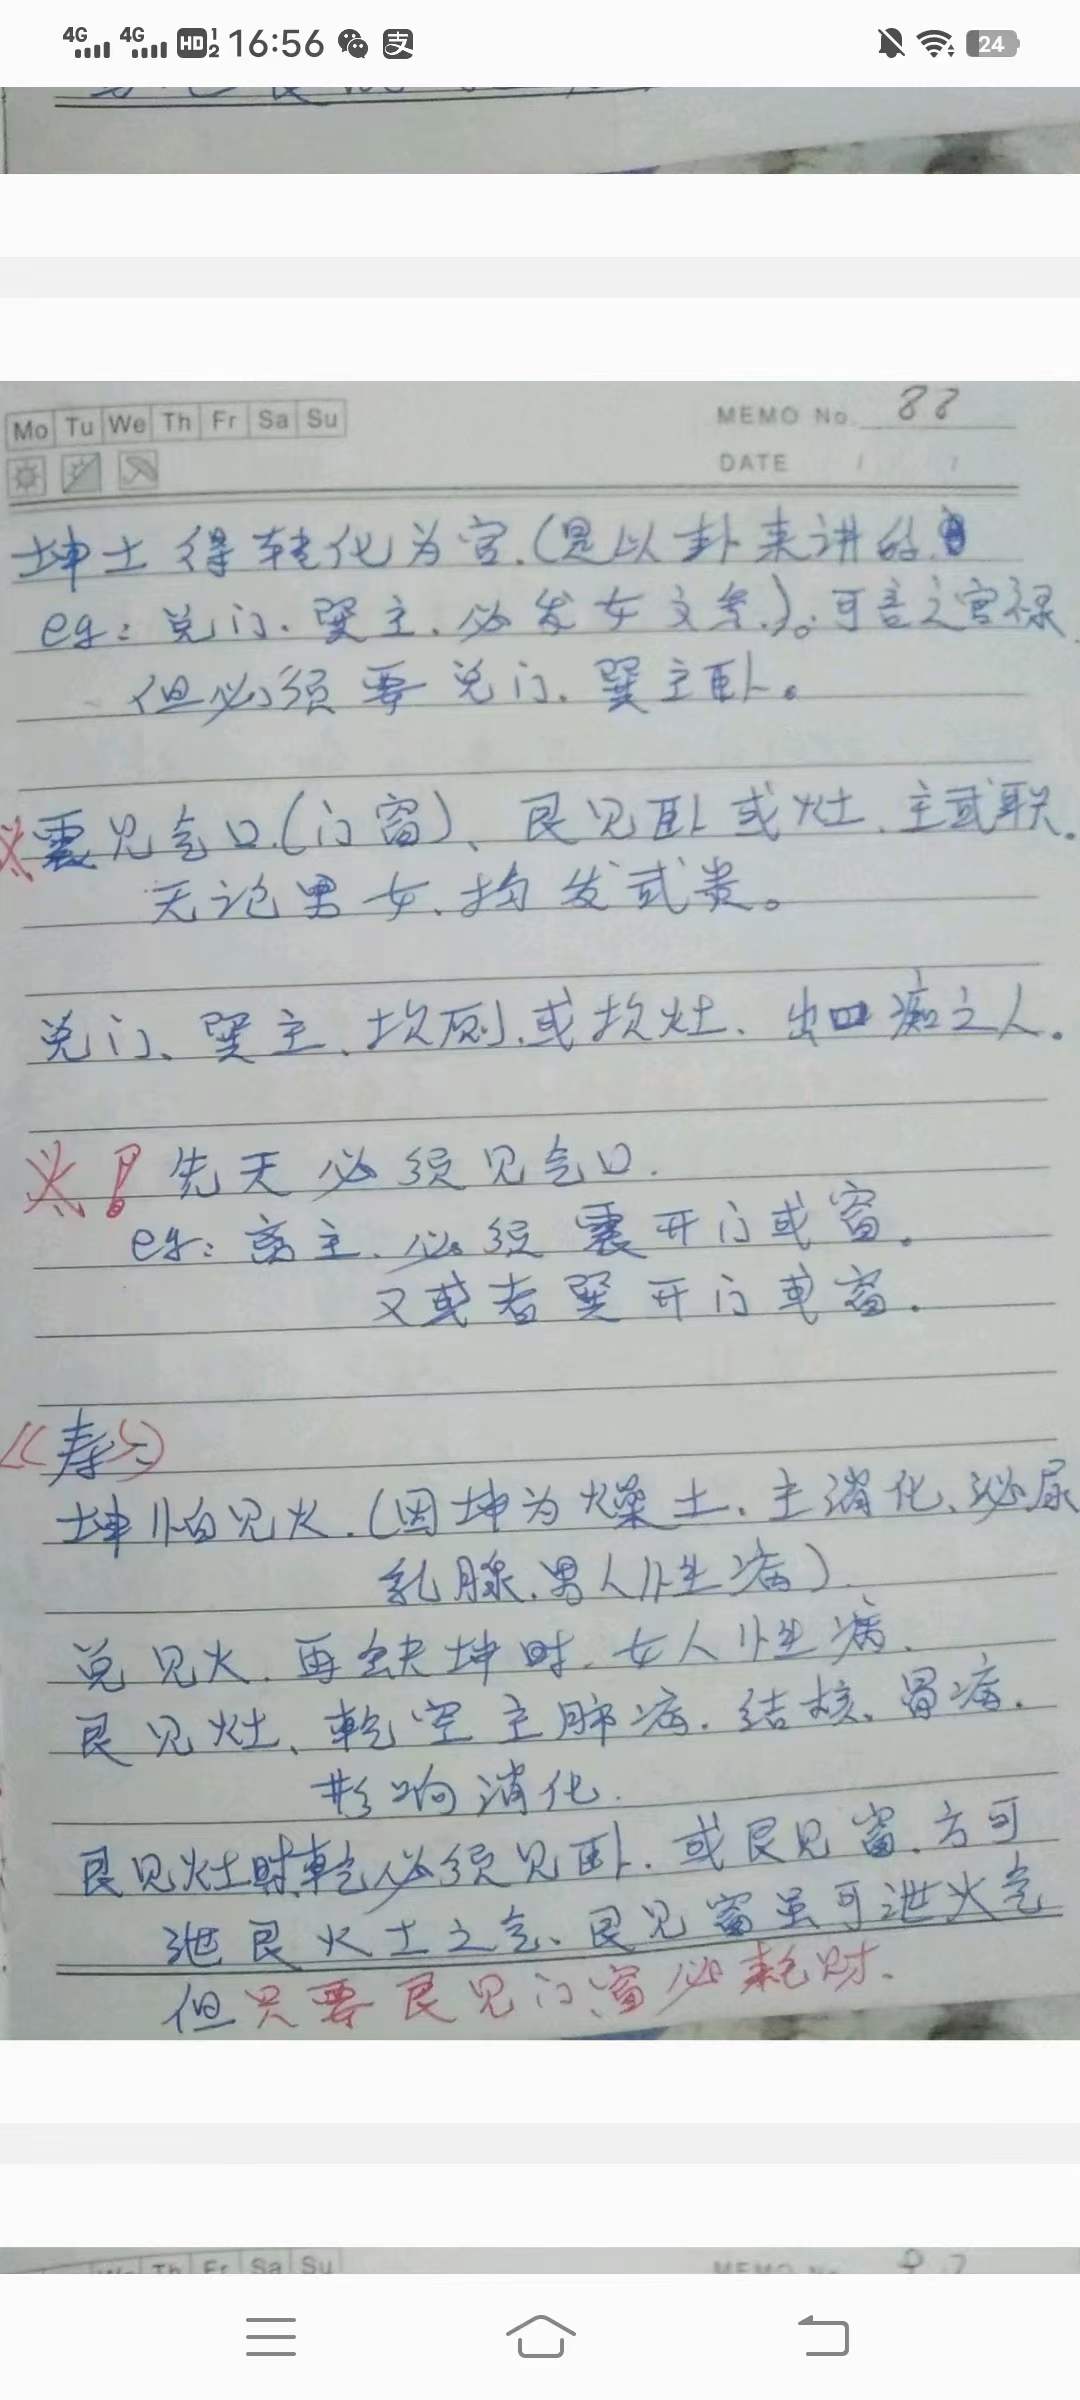 4G 4G HD 1 2 16:56 支 24
Mo Tu We Th Fr Sa Su
MEMO No. 88
DATE / /
坤土得转化为官.(是以卦来讲的
eg:兑门、巽主、必发女文贵.)。可言之官禄
但必须要兑门、巽主卧。
震见气口(门窗)、艮见卧或灶.主武职.
无论男女、均发武贵。
兑门、巽主、坎厕.或坎灶、出痴之人.
! 先天必须见气口.
eg:离主、必须震开门或窗.
又或者巽开门或窗.
《寿》
坤怕见火.(因坤为燥土、主消化、泌尿
乳腺.男人小生病)
兑见火.再缺坤时.女人小生病.
艮见灶、乾空主肺病.结核.胃病.
影响消化.
艮见灶时乾必须见卧.或艮见窗.方可
泄艮火土之气、艮见窗虽可泄火气
但只要艮见门窗必耗财.
Th Fr Sa Su
MEMO No.